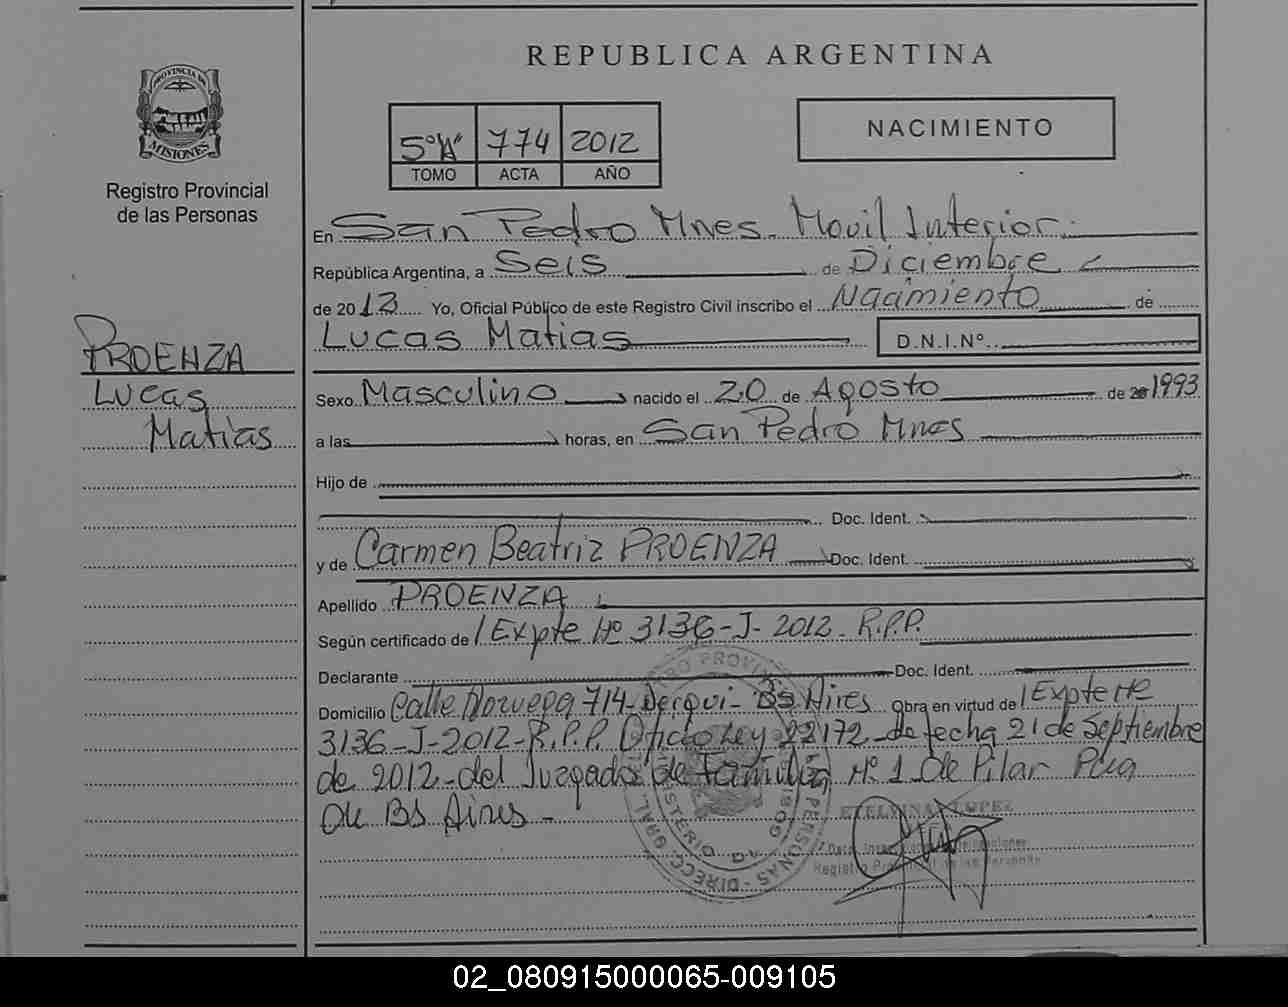 REPUBLICA ARGENTINA
PROVINCIA DE
MISIONES
Registro Provincial
de las Personas
5º"A" 774 2012
TOMO ACTA AÑO
NACIMIENTO
En San Pedro Mnes. Movil Interior.
República Argentina, a Seis de Diciembre
de 2012 Yo, Oficial Público de este Registro Civil inscribo el Nacimiento de
Lucas Matias D.N.I.Nº
PROENZA
Lucas
Matias
Sexo Masculino nacido el 20 de Agosto de 1993
a las horas, en San Pedro Mnes
Hijo de
Doc. Ident.
y de Carmen Beatriz PROENZA Doc. Ident.
Apellido PROENZA
Según certificado de Expte Nº 3136-J-2012-R.P.P.
Declarante Doc. Ident.
Domicilio Calle Noruega 714-Derqui-Bs Aires Obra en virtud de Expte Nº
3136-J-2012-R.P.P. Oficio Ley 22172-de fecha 21 de Septiembre
de 2012-del Juzgado de Familia Nº 1 De Pilar Pcia
de Bs Aires-
ETELVINA LOPEZ
02_080915000065-009105